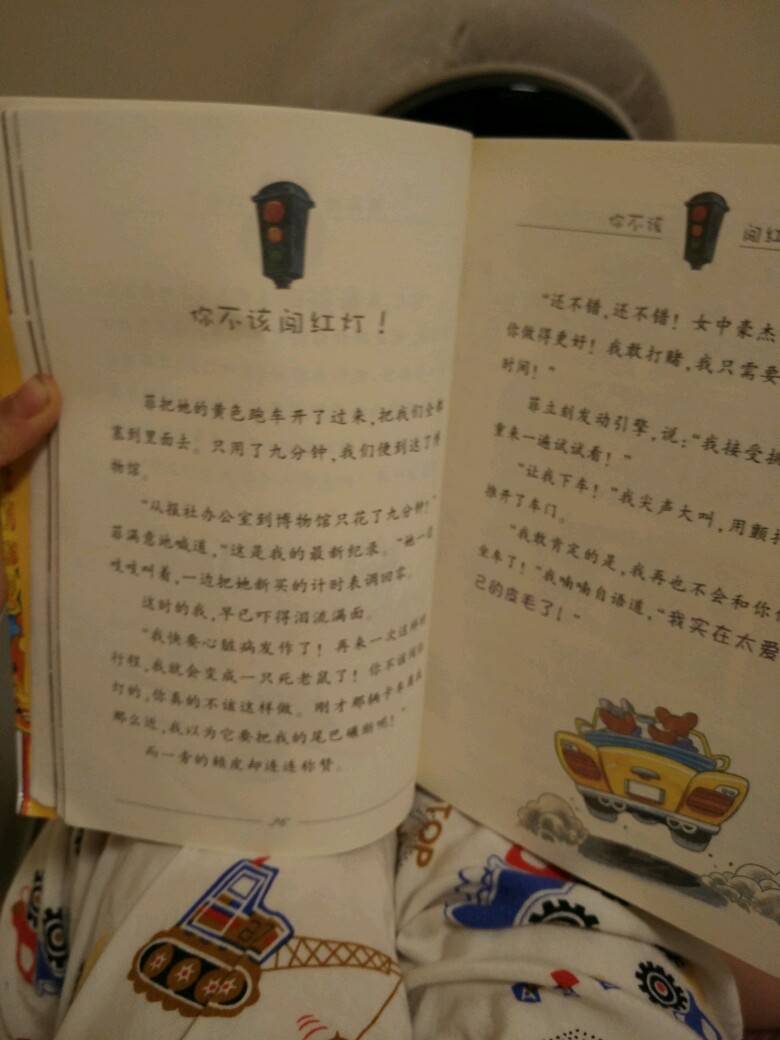 你不该闯红灯!
菲把她的黄色跑车开了过来,把我们全部
塞到里面去。只用了九分钟,我们便到达了博
物馆。
“从报社办公室到博物馆只花了九分钟!”
菲满意地喊道,“这是我的最新纪录。”她一边
吱吱叫着,一边把她新买的计时表调回零。
这时的我,早已吓得泪流满面。
“我快要心脏病发作了!再来一次这样的
行程,我就会变成一只死老鼠了!你不该闯红
灯的,你真的不该这样做。刚才那辆卡车离我
那么近,我以为它要把我的尾巴碾断呢!”
而一旁的赖皮却连连称赞。
26
你不该 闯红
“还不错,还不错!女中豪杰
你做得更好!我敢打赌,我只需要
时间!”
菲立刻发动引擎,说:“我接受挑
重来一遍试试看!”
“让我下车!”我尖声大叫,用颤抖
推开了车门。
“我敢肯定的是,我再也不会和你
坐车了!”我喃喃自语道,“我实在太爱
己的皮毛了!”
TOP